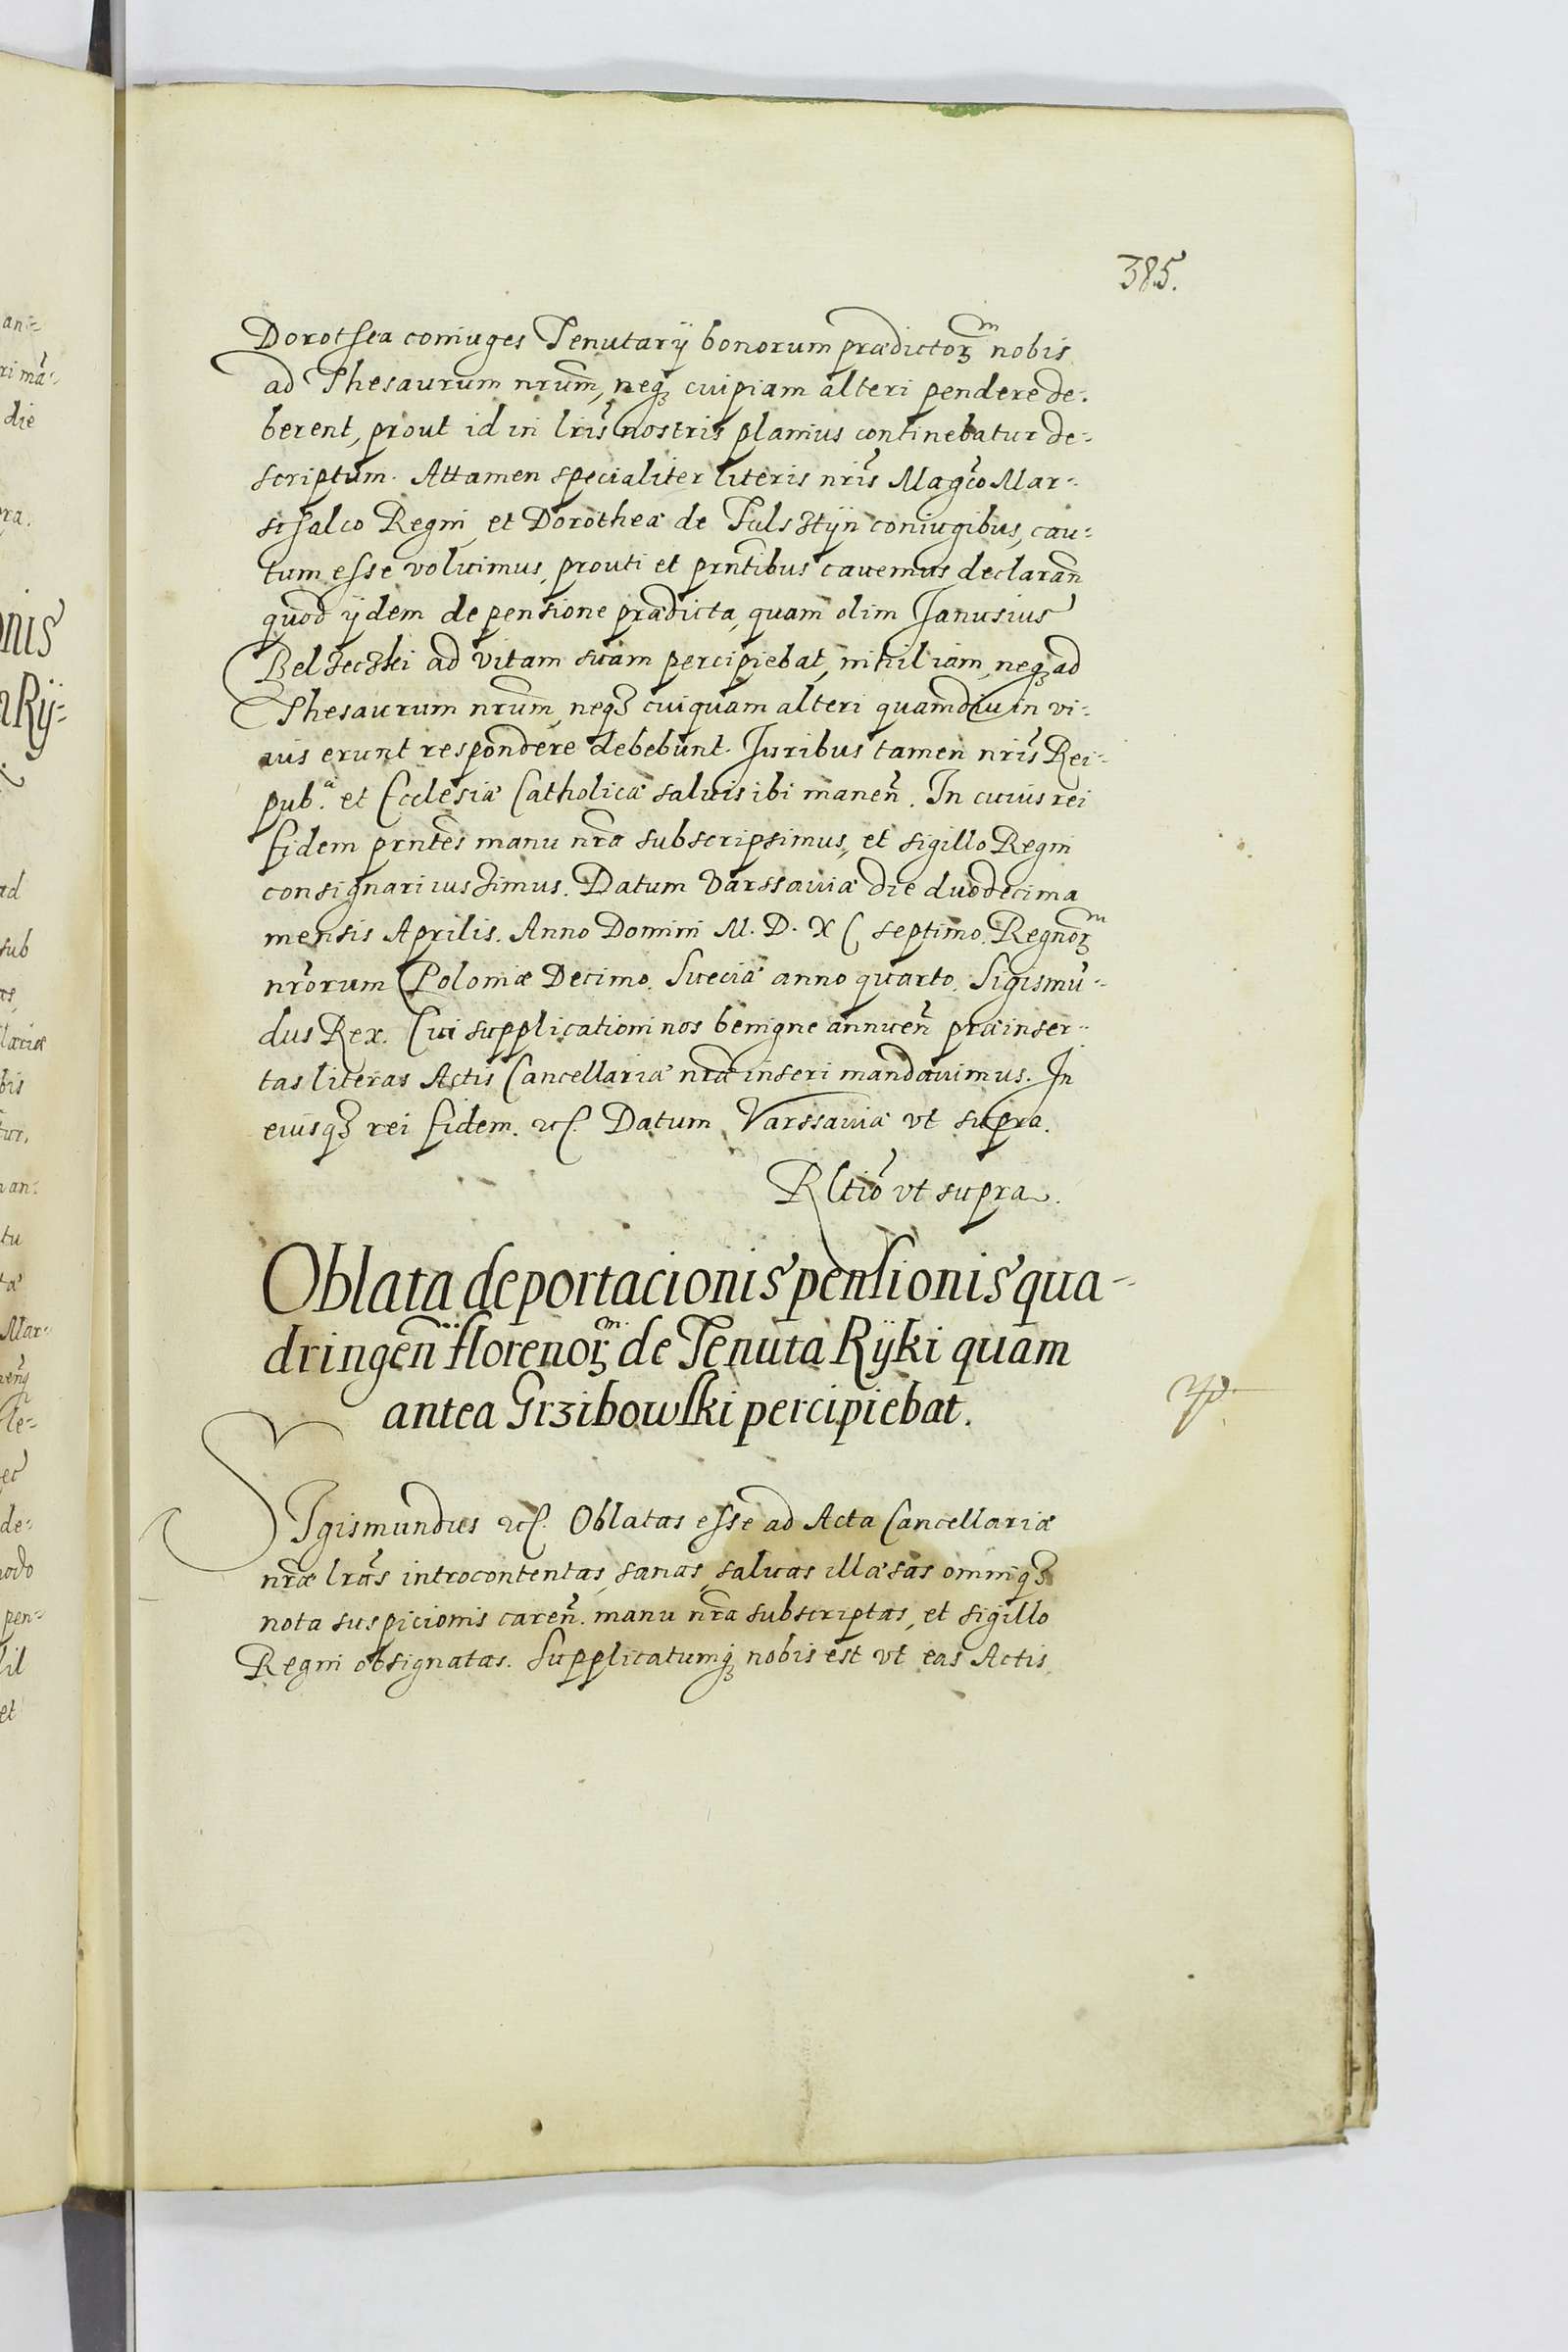 385.
Dorothea coniuges Tenutarÿ bonorum prædictoꝝ nobis
ad Thesaurum nrum̃, neqꝫ cuipiam alteri pendere de-
berent, prout id in lris̃ nostris planius continebatur de-
scriptum. Attamen specialiter literis nris̃ Magco᷈ Mar-
schalco Regni et Dorotheæ de Fulsztÿn coniugibus, cau-
tum esse voluimus, prouti et prntibus̃ cauemus declaran̄
quod ÿdem de pensione prædicta, quam olim Janusius
Belzeczki ad vitam suam percipiebat, nihil iam, neqꝫ ad
Thesaurum nrum̃, neqꝫ cuiquam alteri quamdiu in vi-
uis erunt respondere debebunt. Juribus tamen nris̃ Rei-
pub.æ et Ecclesiæ Catholicæ saluis ibi manen̄. In cuius rei
fidem prntes̃ manu nrã subscripsimus, et sigillo Regni
consignari iussimus. Datum Varssauiæ die duodecima
mensis Aprilis. Anno Domini M. D. XC septimo. Regnoꝝ
nrõrum Poloniæ Decimo. Sueciæ anno quarto. Sigismũ-
dus Rex. Cui supplicationi nos benigne annuen̄ præinser-
tas literas Actis Cancellariæ nræ̃ inseri mandauimus. In
eiusqꝫ rei fidem. etc. Datum Varssauiæ vt supra.
Rltiõ vt supra.
Oblata deportacionis pensionis qua-
dringen̄ florenoꝝ de Tenuta Rÿki quam
antea Grzibowski percipiebat.
SIgismundus etc. Oblatas esse ad Acta Cancellariæ
nræ̃ lrãs introcontentas, sanas, saluas illæsas omniqꝫ
nota suspicionis caren̄. manu nrã subscriptas, et sigillo
Regni obsignatas. Supplicatumqꝫ nobis est vt eas Actis